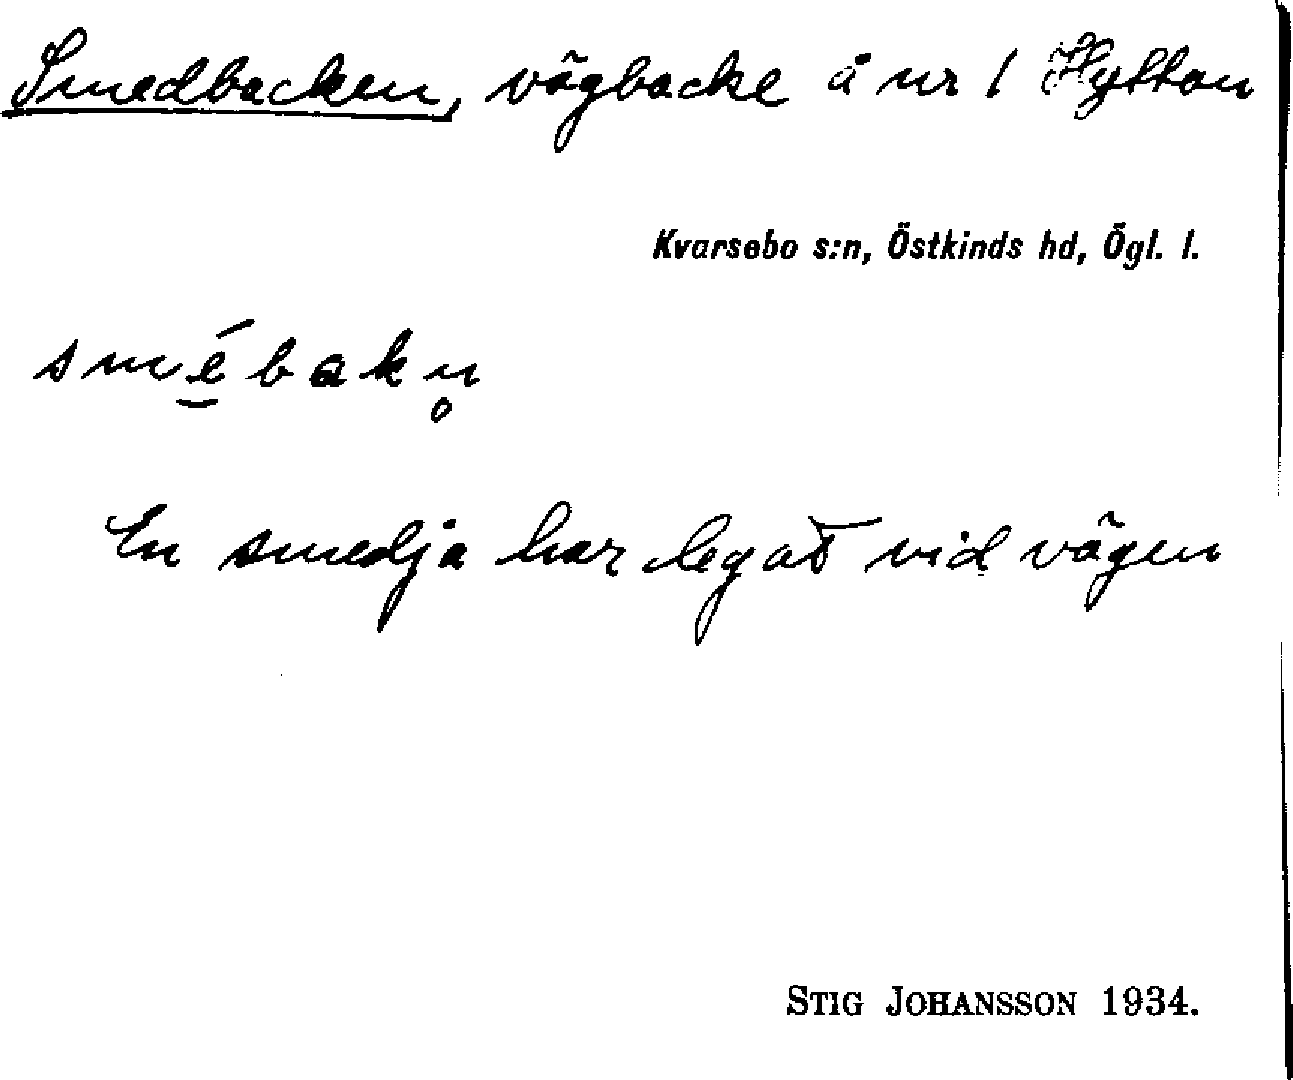 Smedbacken, vägbacke å nr 1 Hyttan
Kvarsebo s:n, Östkinds hd, Ögl. l.
smé̱bakn̥
En smedja har legat vid vägen
STIG JOHANSSON 1934.